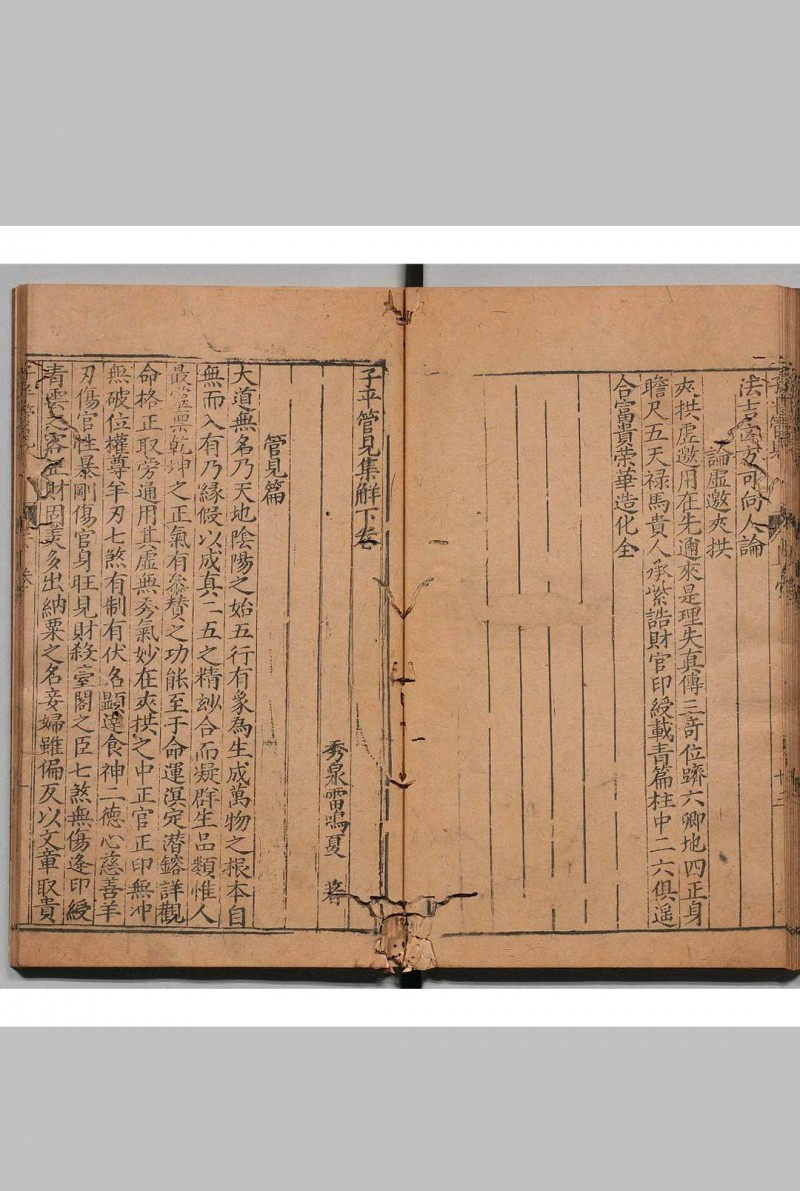 法吉凶方可向人論
論虛邀夾拱
夾拱虛邀用在先邇來是理失真傳三奇位躋六卿地四正身
瞻尺五天祿馬貴人承紫誥財官印綬載青篇柱中二六俱遥
合富貴荣華造化全
子平管見集解下卷
秀泉雷鳴夏 著
管見篇
大道無名乃天地陰陽之始五行有象為生成萬物之根本自
無而入有乃緣候以成真二五之精妙合而凝群生品類惟人
最靈稟乾坤之正氣有叅賛之功能至于命運㝠定潜鎔詳觀
命格正取旁通用其虛無秀氣妙在夾拱之中正官正印無冲
無破位權尊羊刃七煞有制有伏名顯達食神二德心慈善羊
刃傷官性暴剛傷官身旺見財殺臺閣之臣七煞無傷逢印綬
青雲之客正財固美多出納粟之名妾婦雖偏反以文章取貴